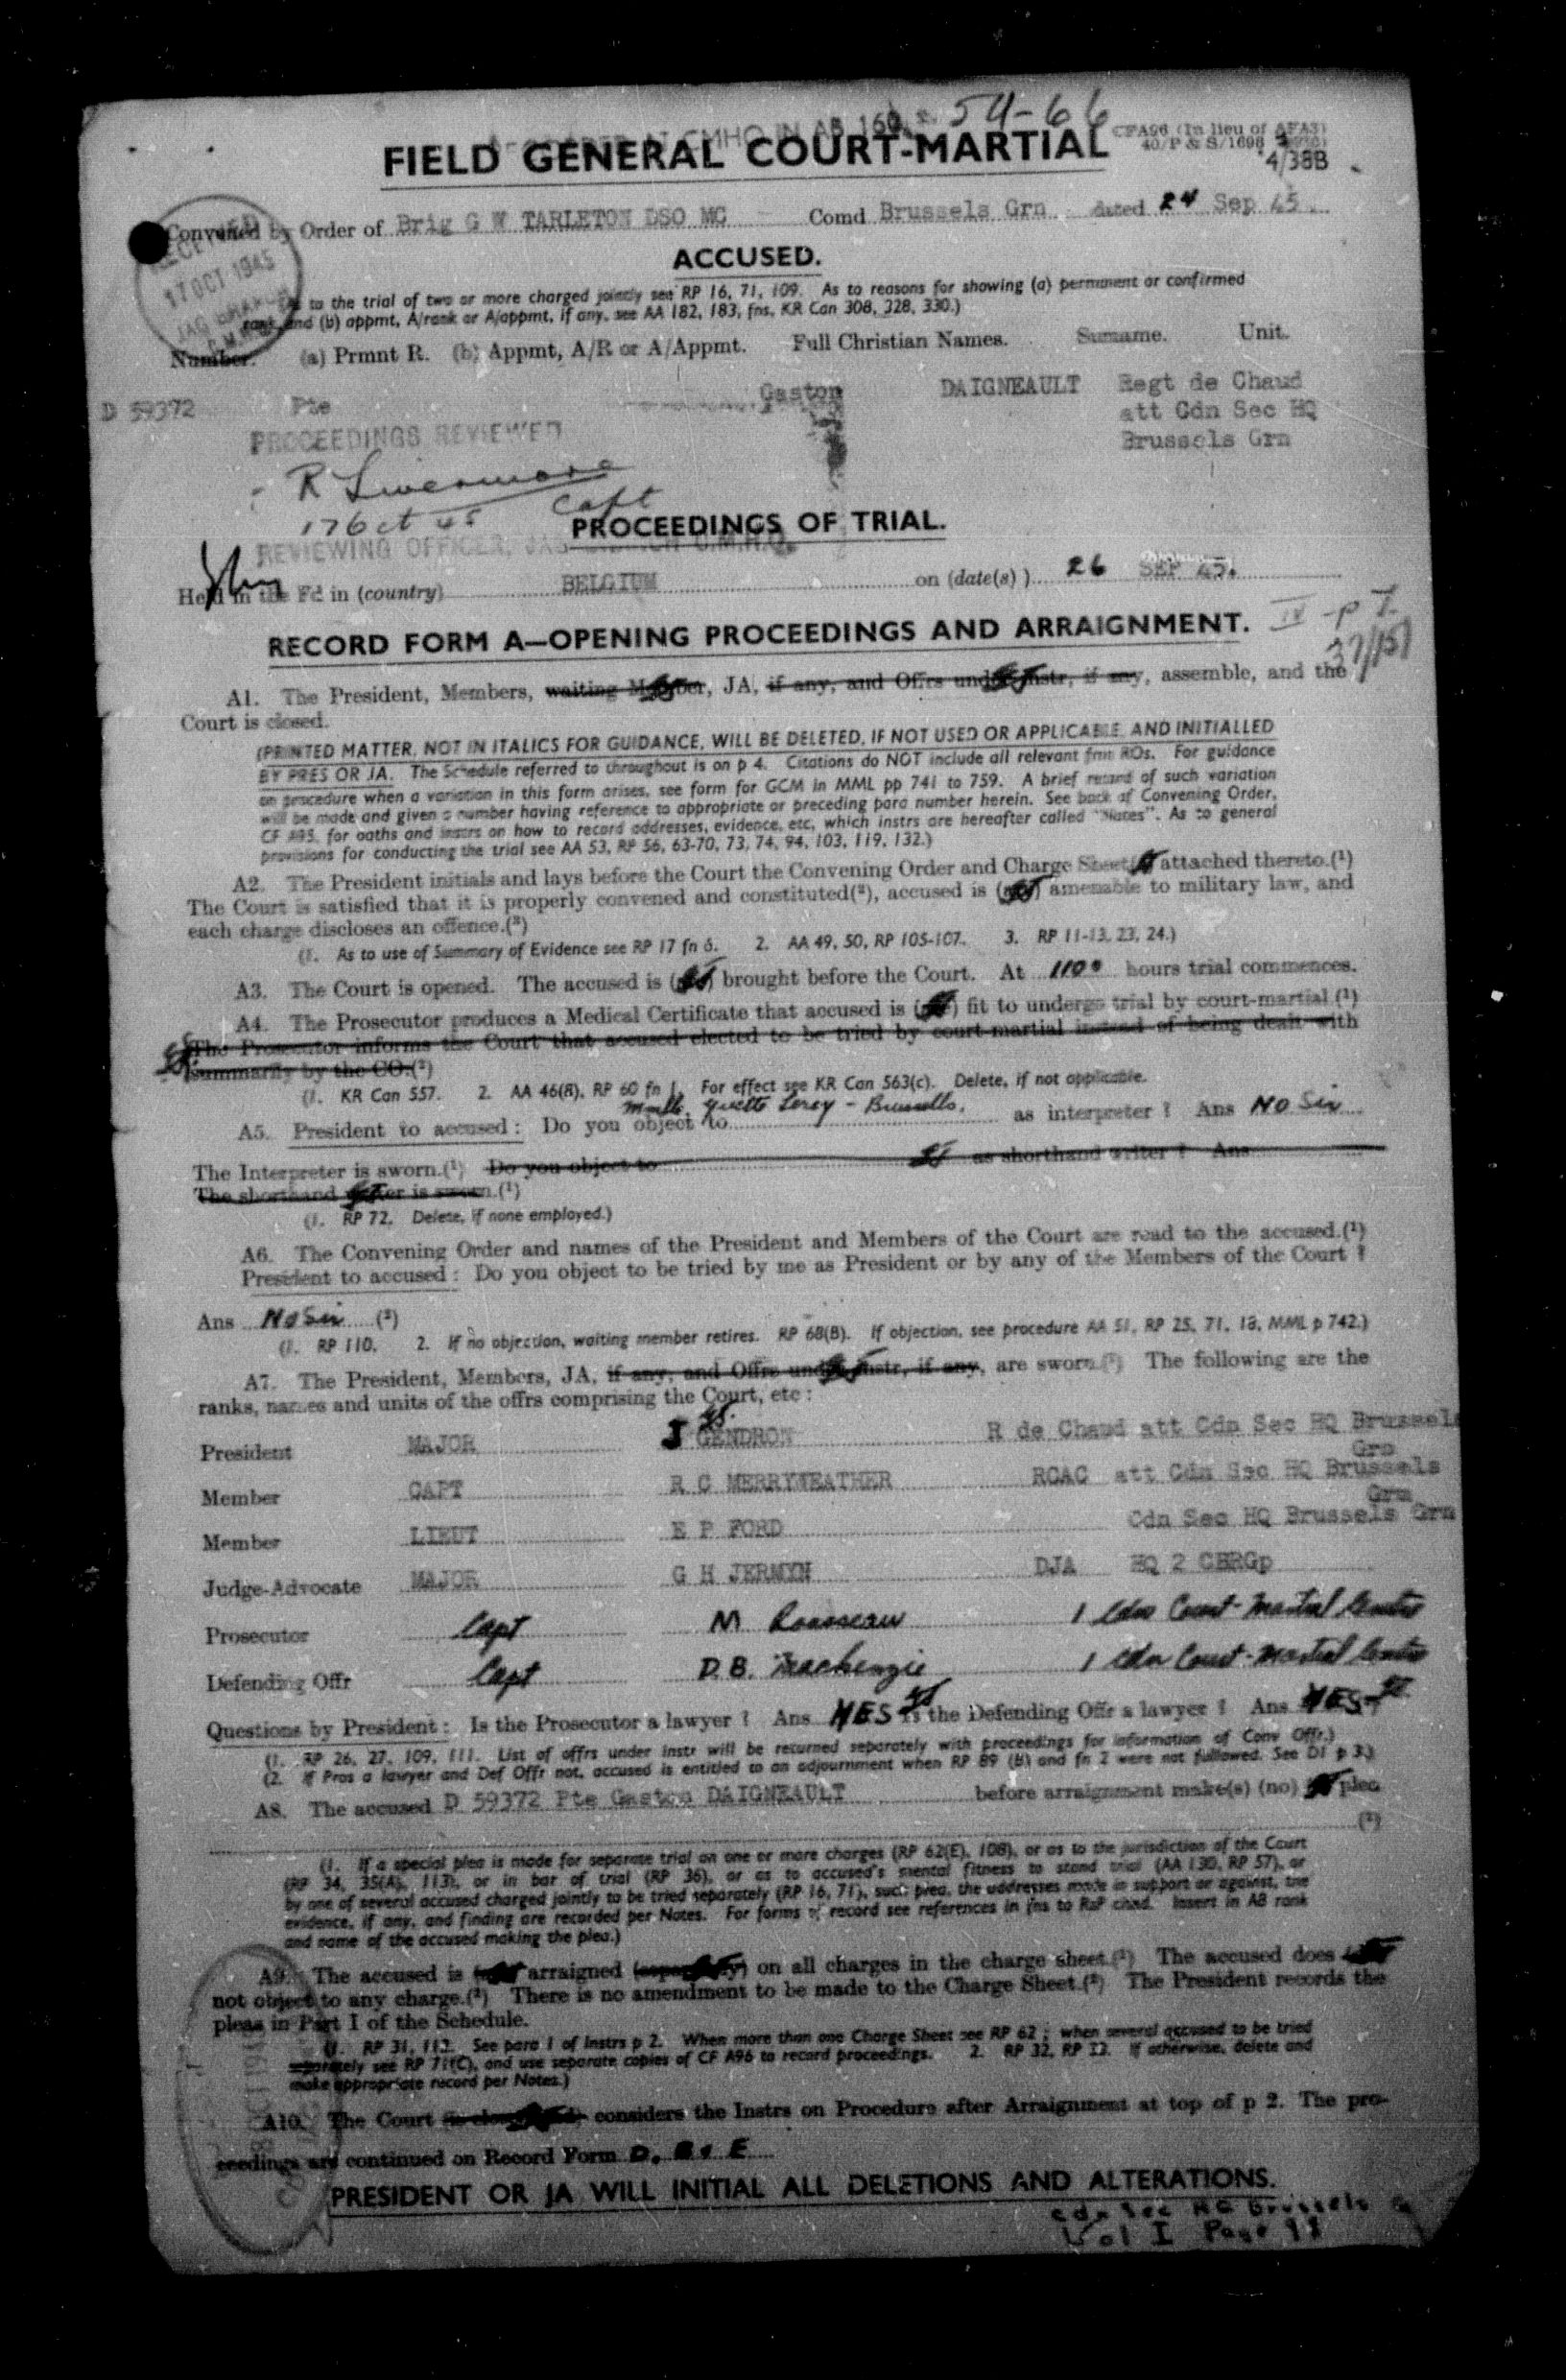 54-66
FIELD GENERAL COURT-MARTIAL
CFA96 (In lieu of AFA3)
40/P & S/1698
4/38B
Convened by Order of Brig G W TARLETON DSO MC Comd Brussels Grn dated 24 Sep 45.
RECEIVED
17 OCT 1945
JAG BRANCH
ACCUSED.
to the trial of two or more charged jointly see RP 16, 71, 109. As to reasons for showing (a) permanent or confirmed
rank and (b) appmt, A/rank or A/appmt, if any, see AA 182, 183, fns, KR Can 308, 328, 330.)
Number. (a) Prmnt R. (b) Appmt, A/R or A/Appmt. Full Christian Names. Surname. Unit.
D 59372 Pte Gaston DAIGNEAULT Regt de Chaud
att Cdn Sec HQ
Brussels Grn
PROCEEDINGS REVIEWED
R Livermore
Capt
17 Oct 45
PROCEEDINGS OF TRIAL.
REVIEWING OFFICER, JAG BRANCH C.M.H.Q.
Held in the Fd in (country) BELGIUM on (date(s)) 26 SEP 45.
RECORD FORM A—OPENING PROCEEDINGS AND ARRAIGNMENT.
A1. The President, Members, waiting Member, JA, if any, and Offrs under Instr, if any, assemble, and the
Court is closed.
(PRINTED MATTER, NOT IN ITALICS FOR GUIDANCE, WILL BE DELETED, IF NOT USED OR APPLICABLE, AND INITIALLED
BY PRES OR JA. The Schedule referred to throughout is on p 4. Citations do NOT include all relevant fmt ROs. For guidance
on procedure when a variation in this form arises, see form for GCM in MML pp 741 to 759. A brief record of such variation
will be made and given a number having reference to appropriate or preceding para number herein. See back of Convening Order,
CF A95, for oaths and instrs on how to record addresses, evidence, etc, which instrs are hereafter called "Notes". As to general
provisions for conducting the trial see AA 53, RP 56, 63-70, 73, 74, 94, 103, 119, 132.)
A2. The President initials and lays before the Court the Convening Order and Charge Sheet attached thereto.(¹)
The Court is satisfied that it is properly convened and constituted(²), accused is (not) amenable to military law, and
each charge discloses an offence.(³)
(1. As to use of Summary of Evidence see RP 17 fn 6. 2. AA 49, 50, RP 105-107. 3. RP 11-13, 23, 24.)
A3. The Court is opened. The accused is brought before the Court. At 1100 hours trial commences.
A4. The Prosecutor produces a Medical Certificate that accused is fit to undergo trial by court-martial.(¹)
The Prosecutor informs the Court that accused elected to be tried by court-martial instead of being dealt with
summarily by the CO.(²)
(1. KR Can 557. 2. AA 46(8), RP 60 fn 1. For effect see KR Can 563(c). Delete, if not applicable.
A5. President to accused: Do you object to Mmlle. Yvette Leroy - Brussells. as interpreter? Ans No Sir
The Interpreter is sworn.(¹) Do you object to as shorthand writer? Ans
The shorthand writer is sworn.(¹)
(1. RP 72. Delete, if none employed.)
A6. The Convening Order and names of the President and Members of the Court are read to the accused.(¹)
President to accused: Do you object to be tried by me as President or by any of the Members of the Court?
Ans No Sir (²)
(1. RP 110. 2. If no objection, waiting member retires. RP 68(B). If objection, see procedure AA 51, RP 25, 71, 18, MML p 742.)
A7. The President, Members, JA, if any, and Offrs under Instr, if any, are sworn.(¹) The following are the
ranks, names and units of the offrs comprising the Court, etc:
President MAJOR J GENDRON R de Chaud att Cdn Sec HQ Brussels
Grn
Member CAPT R C MERRYWEATHER RCAC att Cdn Sec HQ Brussels
Grn
Member LIEUT E P FORD Cdn Sec HQ Brussels Grn
Judge-Advocate MAJOR G H JERMYN DJA HQ 2 CBRGp
Prosecutor Capt M Rousseau 1 Cdn Court-Martial Centre
Defending Offr Capt D.B. Mackenzie 1 Cdn Court-Martial Centre
Questions by President: Is the Prosecutor a lawyer? Ans YES Is the Defending Offr a lawyer? Ans YES
(1. RP 26, 27, 109, 111. List of offrs under Instr will be returned separately with proceedings for information of Conv Offr.)
(2. If Pros a lawyer and Def Offr not, accused is entitled to an adjournment when RP 89 (B) and fn 2 were not followed. See D1 p 3.)
A8. The accused D 59372 Pte Gaston DAIGNEAULT before arraignment make(s) (no) plea
(¹)
(1. If a special plea is made for separate trial on one or more charges (RP 62(E), 108), or as to the jurisdiction of the Court
(RP 34, 35(A), 113), or in bar of trial (RP 36), or as to accused's mental fitness to stand trial (AA 130, RP 57), or
by one of several accused charged jointly to be tried separately (RP 16, 71), such plea, the addresses made in support or against, the
evidence, if any, and finding are recorded per Notes. For forms of record see references in fns to RsP cited. Insert in A8 rank
and name of the accused making the plea.)
A9. The accused is arraigned (separately) on all charges in the charge sheet.(¹) The accused does
not object to any charge.(²) There is no amendment to be made to the Charge Sheet.(²) The President records the
pleas in Part I of the Schedule.
(1. RP 31, 112. See para 1 of Instrs p 2. When more than one Charge Sheet see RP 62; when several accused to be tried
separately see RP 71(C), and use separate copies of CF A96 to record proceedings. 2. RP 32, RP 33. If otherwise, delete and
make appropriate record per Notes.)
A10. The Court (is closed and) considers the Instrs on Procedure after Arraignment at top of p 2. The pro-
ceedings are continued on Record Form D. & E
PRESIDENT OR JA WILL INITIAL ALL DELETIONS AND ALTERATIONS.
Cdn Sec HQ Brussels G
Vol I Page 98